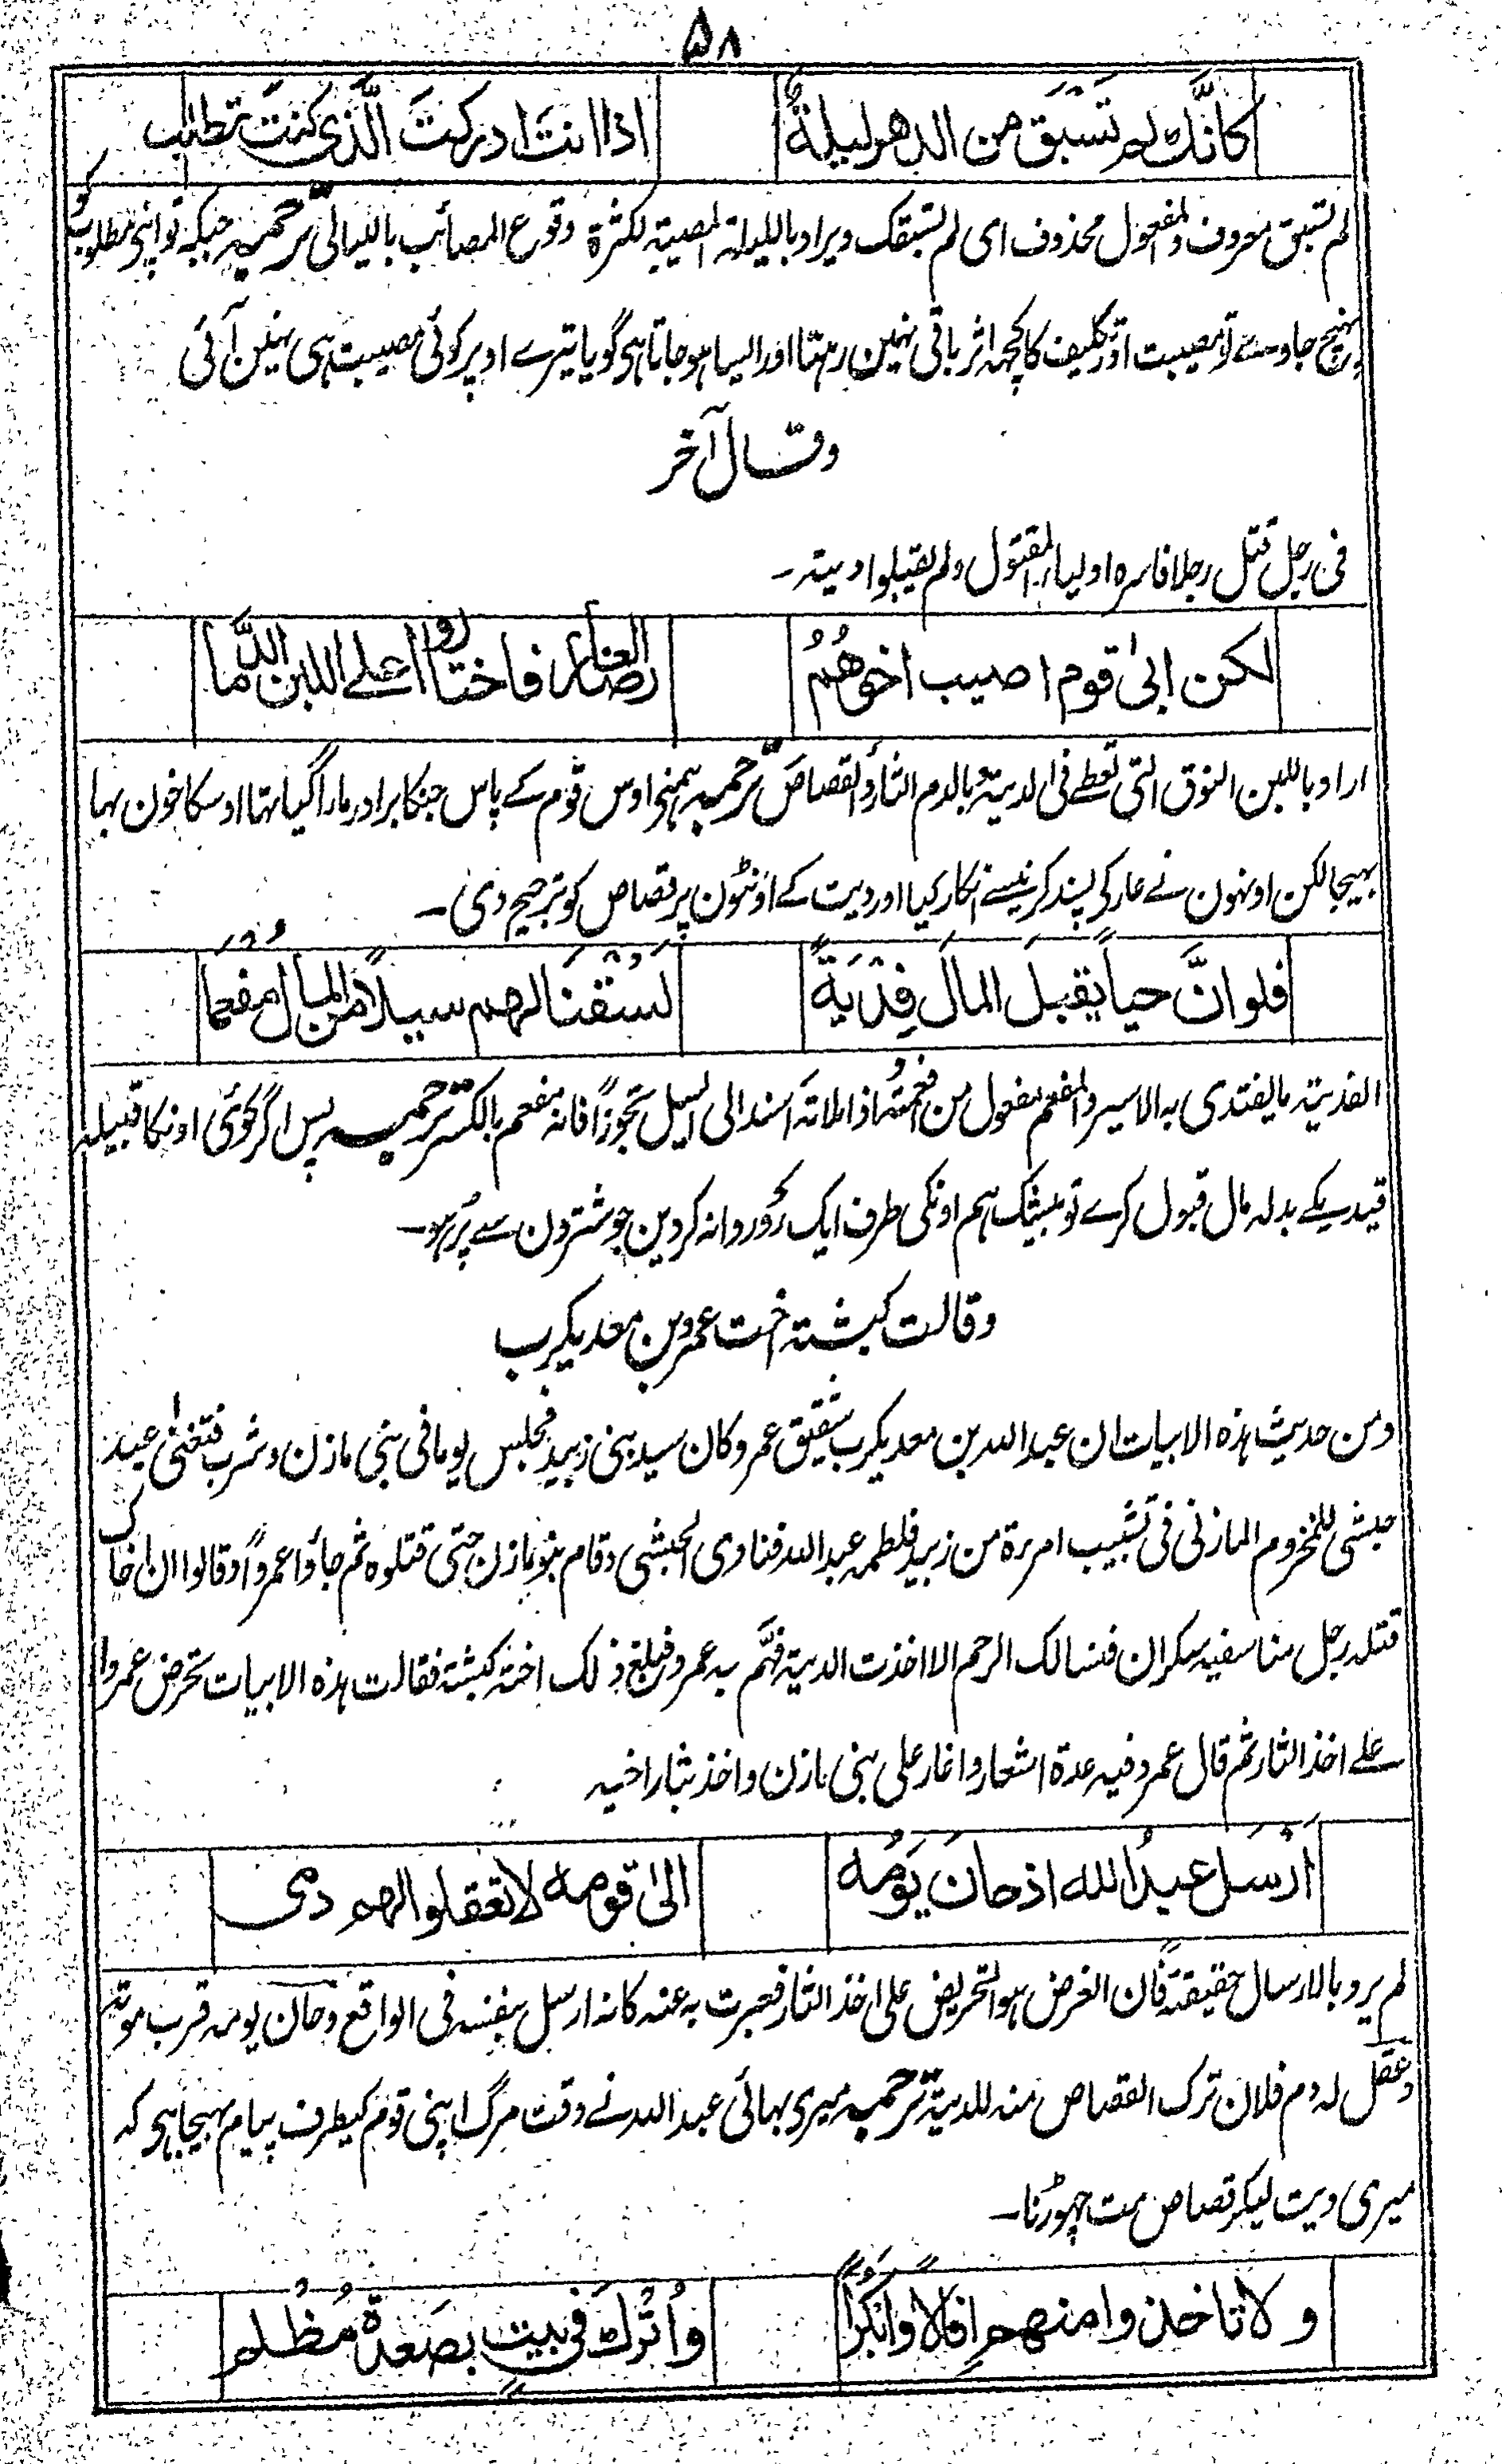 ۵۸
كانَّك لم تُسبَق من الدهر ليلةً اذا انتَ ادركتَ الَّذى كنتَ تطلب
لم تسبق معروف والمفعول محذوف اى لم تسبقک ويراد بالليلة المصيبة لكثرة وقوع المصائب بالليالى ترجمہ جبکہ تو اپنی مطلوب کو
پہنچ جاوے تو مصیبت اور تکلیف کا کچھہ اثر باقی نہین رہتا اور ایسا ہو جاتا ہی گویا تیرے اوپر کوئی مصیبت ہی نہین آئی
وقال آخر
فى رجل قتل رجلا فاسره اولياء المقتول ولم يقبلوا ديته ـ
لكن ابىٰ قوم اصيب اخوهُمُ رضا العار فاختاروا على اللبن الدَّما
اراد باللبن النوق التى تعطے فى الدية وبالدم الثأر والقصاص ترجمہ ہمنے اوس قوم کے پاس جنکا برادر مارا گیا تہا اوسکا خون بہا
بہیجا لکن اونہون نے عار کی پسند کرنیسے انکار کیا اور دیت کے اونٹون پر قصاص کو ترجیح دی ۔
فلو انَّ حياً يقبلَ المالَ فِدْيَةً لَسُقْنَا لهم سيلاً من المال مُفعَما
الفدية ما يفتدى به الاسير والمفعم مفعول من افعمتُه اذا ملأته اسند الى السيل تجوزاً فانه مفعم بالكسر ترجمہ پس اگر کوئی اونکا قبیلہ
قیدیکے بدلہ مال قبول کرے تو بیشک ہم اونکی طرف ایک رَو روانہ کردین جو شترون سے پُر ہو ۔
وقالت كبشة اخت عمرو بن معديكرب
ومن حديث هذه الابيات ان عبد الله بن معديكرب شقيق عمرو كان سيد بنى زبيد فجلس يوما فى بنى مازن وشرب فتغنىٰ عبد
حبشى للمخزوم المازنى فى تشبيب امرءة من زبيد فلطمه عبد الله فنادى الحبشى وقام بنو مازن حتى قتلوه ثم جاؤا عمرواً وقالوا ان اخاک
قتله رجل منا سفيه سكران فنسالك الرحم الا اخذت الدية فهَّم به عمرو فبلغ ذلك اخته كبشة فقالت هذه الابيات تحرض عمروا
علے اخذ الثار ثم قال عمرو فيه عدة اشعار واغار على بنى مازن واخذ بثار اخيه
اَرْسَلَ عبدُ الله اذ حانَ يَومُه الىٰ قومه لا تعقلوا لهم دمى
لم يرد بالارسال حقيقةً فان الغرض هو التحريض على اخذ الثار فعبرت به عنه كانه ارسل بنفسه فى الواقع وحان يومه قرب موته
وعقل له دم فلان ترك القصاص منه للدية ترجمہ میری بہائی عبد اللہ نے وقت مرگ اپنی قوم کیطرف پیام بہیجا ہی کہ
میری دیت لیکر قصاص مت چہوڑنا ۔
و لا تاخذوا منهم اِفالاً وَاَبْكُراً واُتْرَكَ فى بيتٍ بصَعدةَ مُظْلم